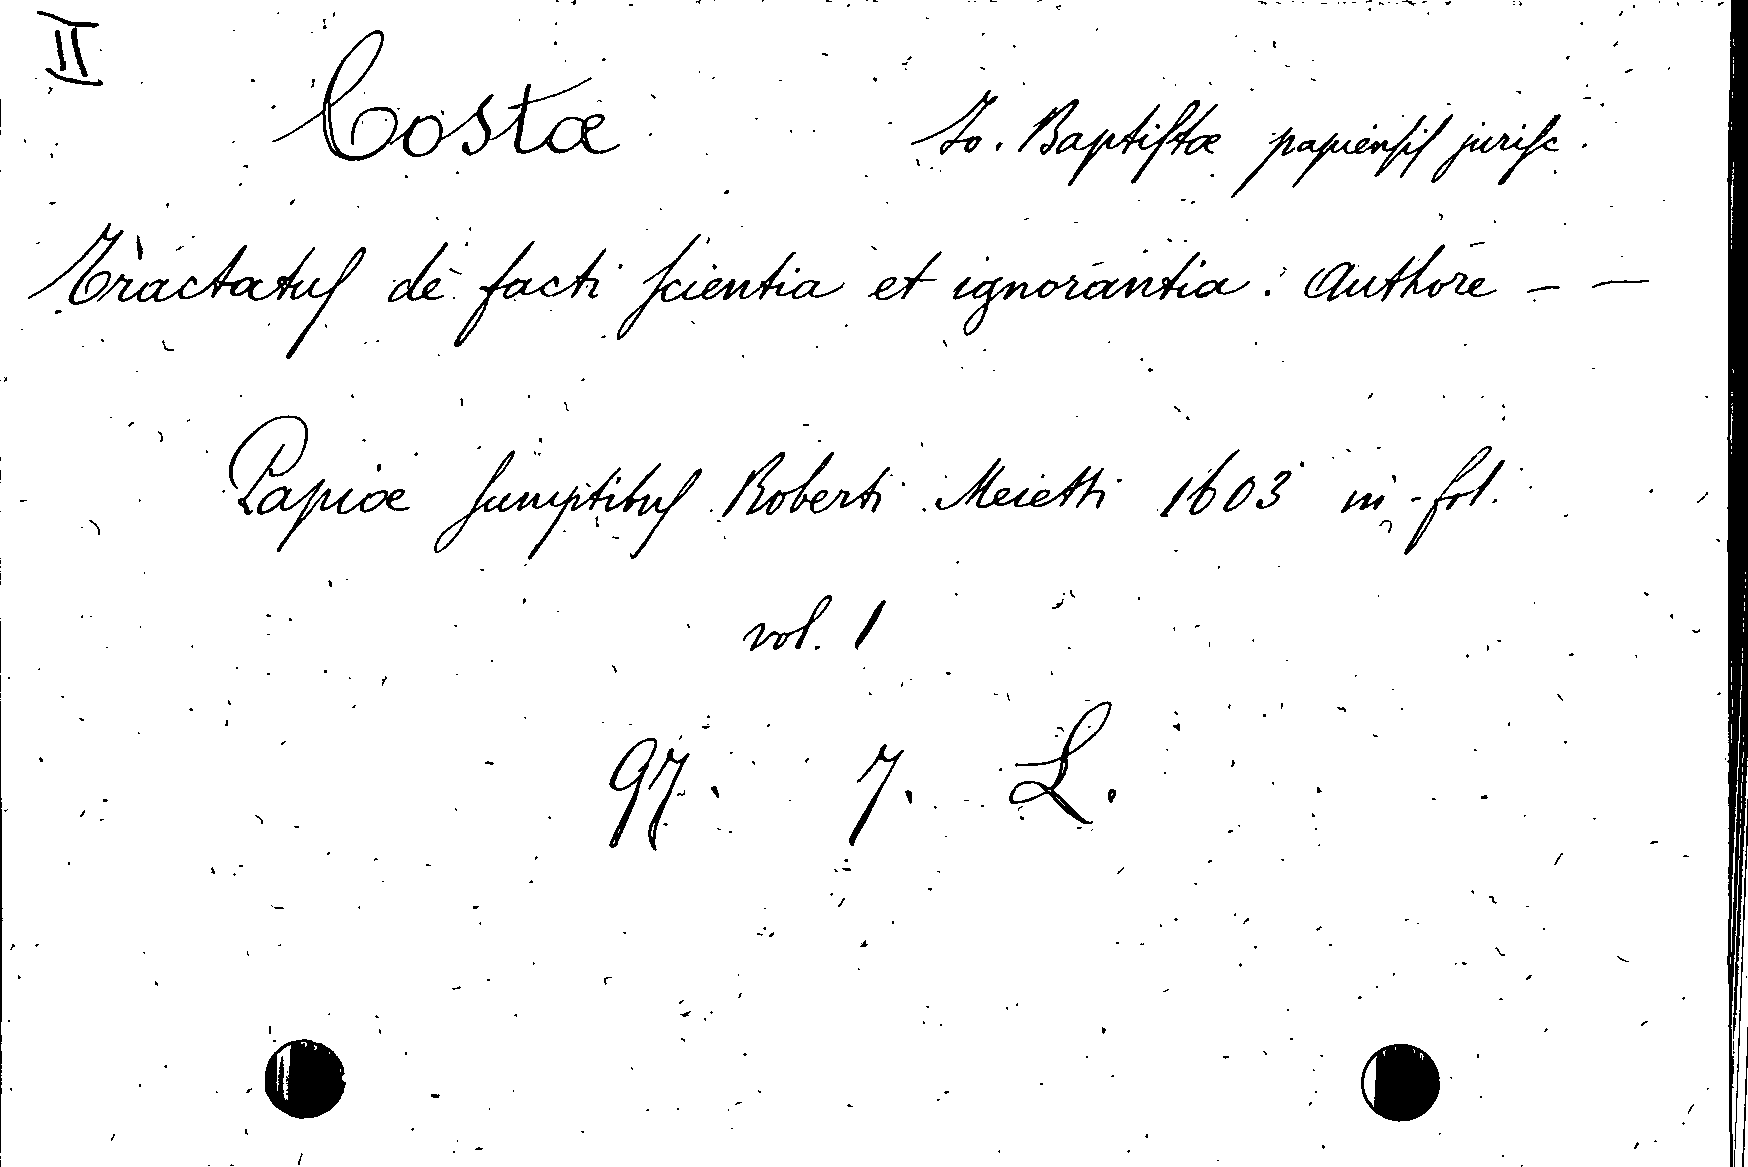 II
Costæ Io. Baptiſtæ papienſiſ juriſc.
Tractatuſ de facti ſcientia et ignorantia: Authore - -
Papiæ ſumptibuſ Roberti Meietti 1603 in-fol.
vol. 1
97. 7. L.